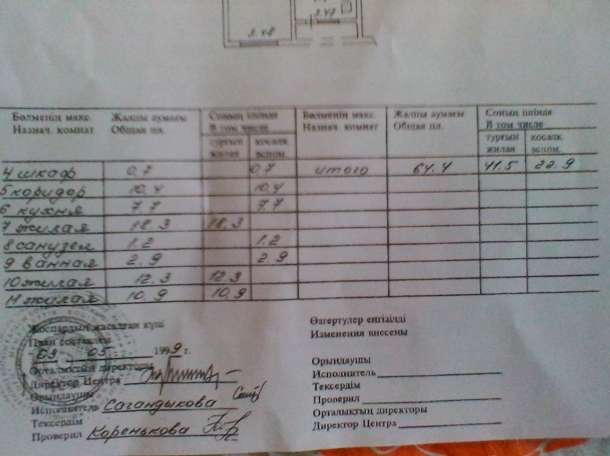 3.48
3.48
Бөлменің мақс. Жалпы аумағы Соның ішінде Бөлменің мақс. Жалпы аумағы Соның ішінде
Назнач. комнат Общая пл. В том числе Назнач. комнат Общая пл. В том числе
тұрғын қосалқ. тұрғын қосалқ.
жилая вспом. жилая вспом.
4 шкаф 0,7 0,7 итого 64.4 41.5 22.9
5 коридор 10,4 10,4
6 кухня 7.7 7.7
7 жилая 18.3 18.3
8 санузел 1.2 1.2
9 ванная 2.9 2.9
10 жилая 12.3 12.3
11 жилая 10,9 10,9
Жоспардың жасалған күні
План составлен
03 05 1999 г.
Орталықтың директоры
Директор Центра
Орындаушы
Исполнитель Сагандыкова
Тексердім
Проверил Коренькова
Өзгертулер енгізілді
Изменения внесены
Орындаушы
Исполнитель
Тексердім
Проверил
Орталықтың директоры
Директор Центра